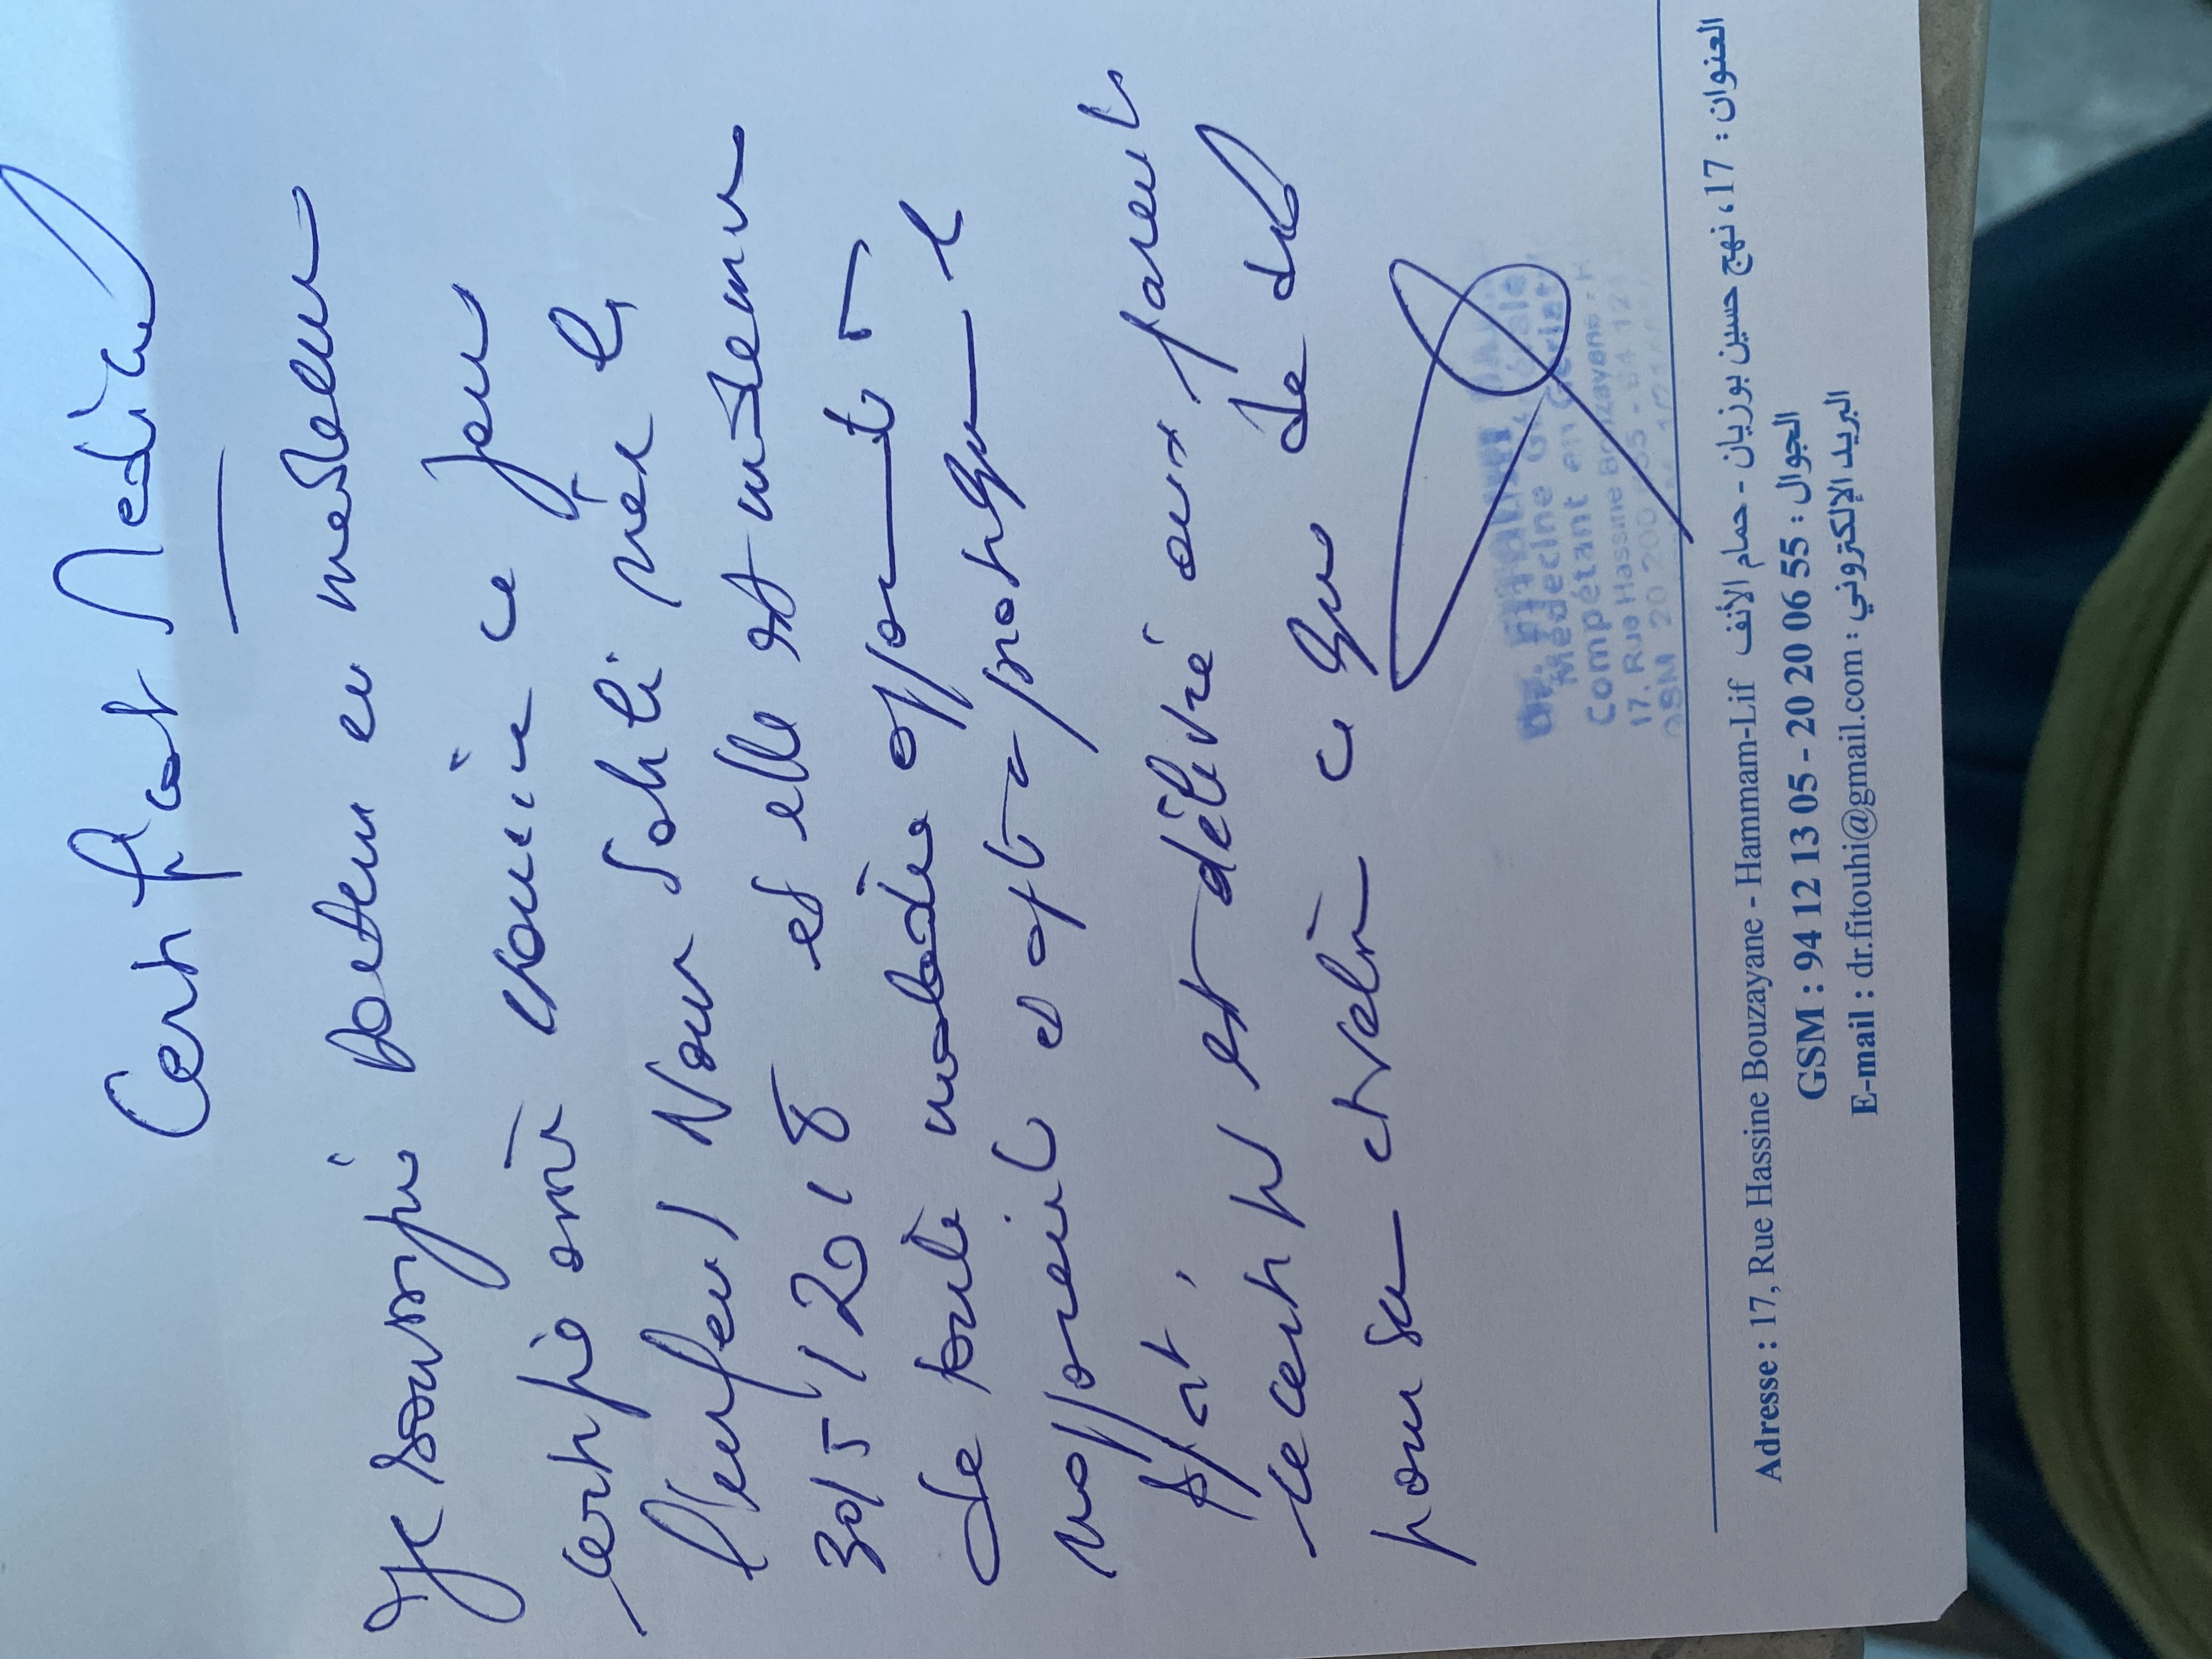 Certificat Médical
Je soussigné Docteur en médecine
certifie avoir examiné ce jour
l'enfant Nour Sahli née le
30/5/2018 et elle est indemne
de toute maladie apparente
apte à pratiquer
sport.
le certif est délivré aux parents
pour servir ce que de droit
Médecine Générale
Compétant en Gériatrie
17, Rue Hassine Bouzayene - H
GSM 20 200 655 - 94 121
Adresse : 17, Rue Hassine Bouzayane - Hammam-Lif العنوان : 17، نهج حسين بوزيان - حمام الأنف
GSM : 94 12 13 05 - 20 20 06 55 : الجوال
E-mail : dr.fitouhi@gmail.com : البريد الإلكتروني